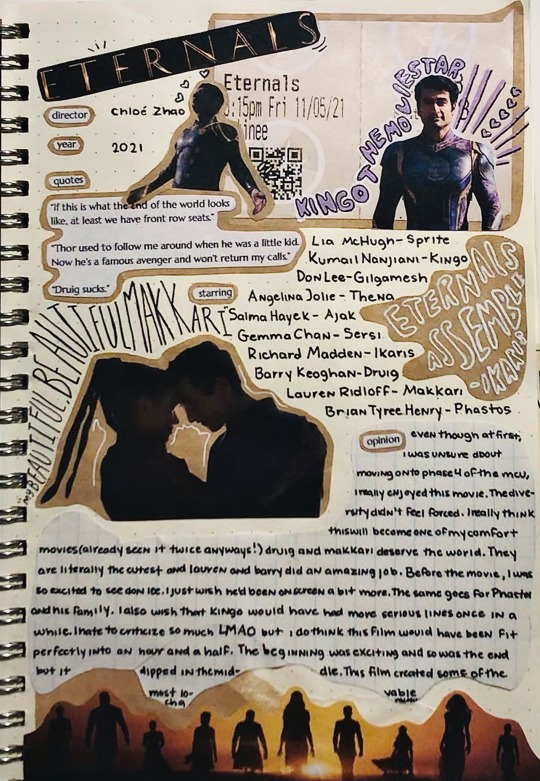 ETERNALS
Eternals
:15pm Fri 11/05/21
inee
director
Chloé Zhao
year
2021
KINGO THE MOVIE STAR
quotes
"If this is what the end of the world looks
like, at least we have front row seats."
"Thor used to follow me around when he was a little kid.
Now he's a famous avenger and won't return my calls."
"Druig sucks."
starring
Lia McHugh - Sprite
Kumail Nanjiani - Kingo
Don Lee - Gilgamesh
Angelina Jolie - Thena
Salma Hayek - Ajak
Gemma Chan - Sersi
Richard Madden - Ikaris
Barry Keoghan - Druig
Lauren Ridloff - Makkari
Brian Tyree Henry - Phastos
ETERNALS
ASSEMBLE
-IKARIS
my BEAUTIFUL, BEAUTIFUL MAKKARI
opinion
even though at first,
i was unsure about
moving onto phase 4 of the mcu,
i really enjoyed this movie. The dive-
rsity didn't feel forced. I really think
this will become one of my comfort
movies (already seen it twice anyways!) druig and makkari deserve the world. They
are literally the cutest and lauren and barry did an amazing job. Before the movie, I was
so excited to see don lee. I just wish he'd been on screen a bit more. The same goes for Phastos
and his family. I also wish that kingo would have had more serious lines once in a
while. I hate to criticize so much LMAO but i do think this film would have been fit
perfectly into an hour and a half. The beginning was exciting and so was the end
but it dipped in the mid- dle. This film created some of the
most lo- vable
cha